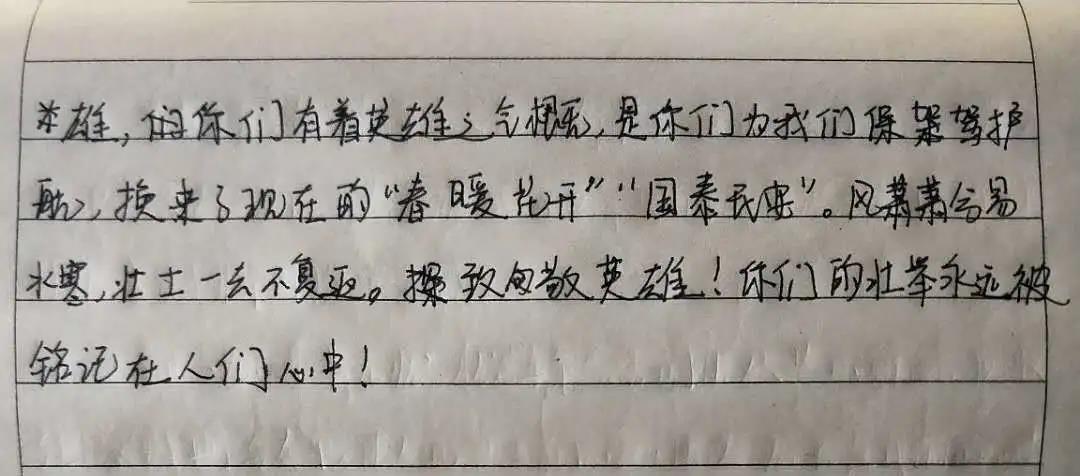 英雄,但你们有着英雄之气概,是你们为我们保驾护
航,换来了现在的“春暖花开”“国泰民安”。风萧萧兮易
水寒,壮士一去不复返。致敬英雄!你们的壮举永远被
铭记在人们心中!